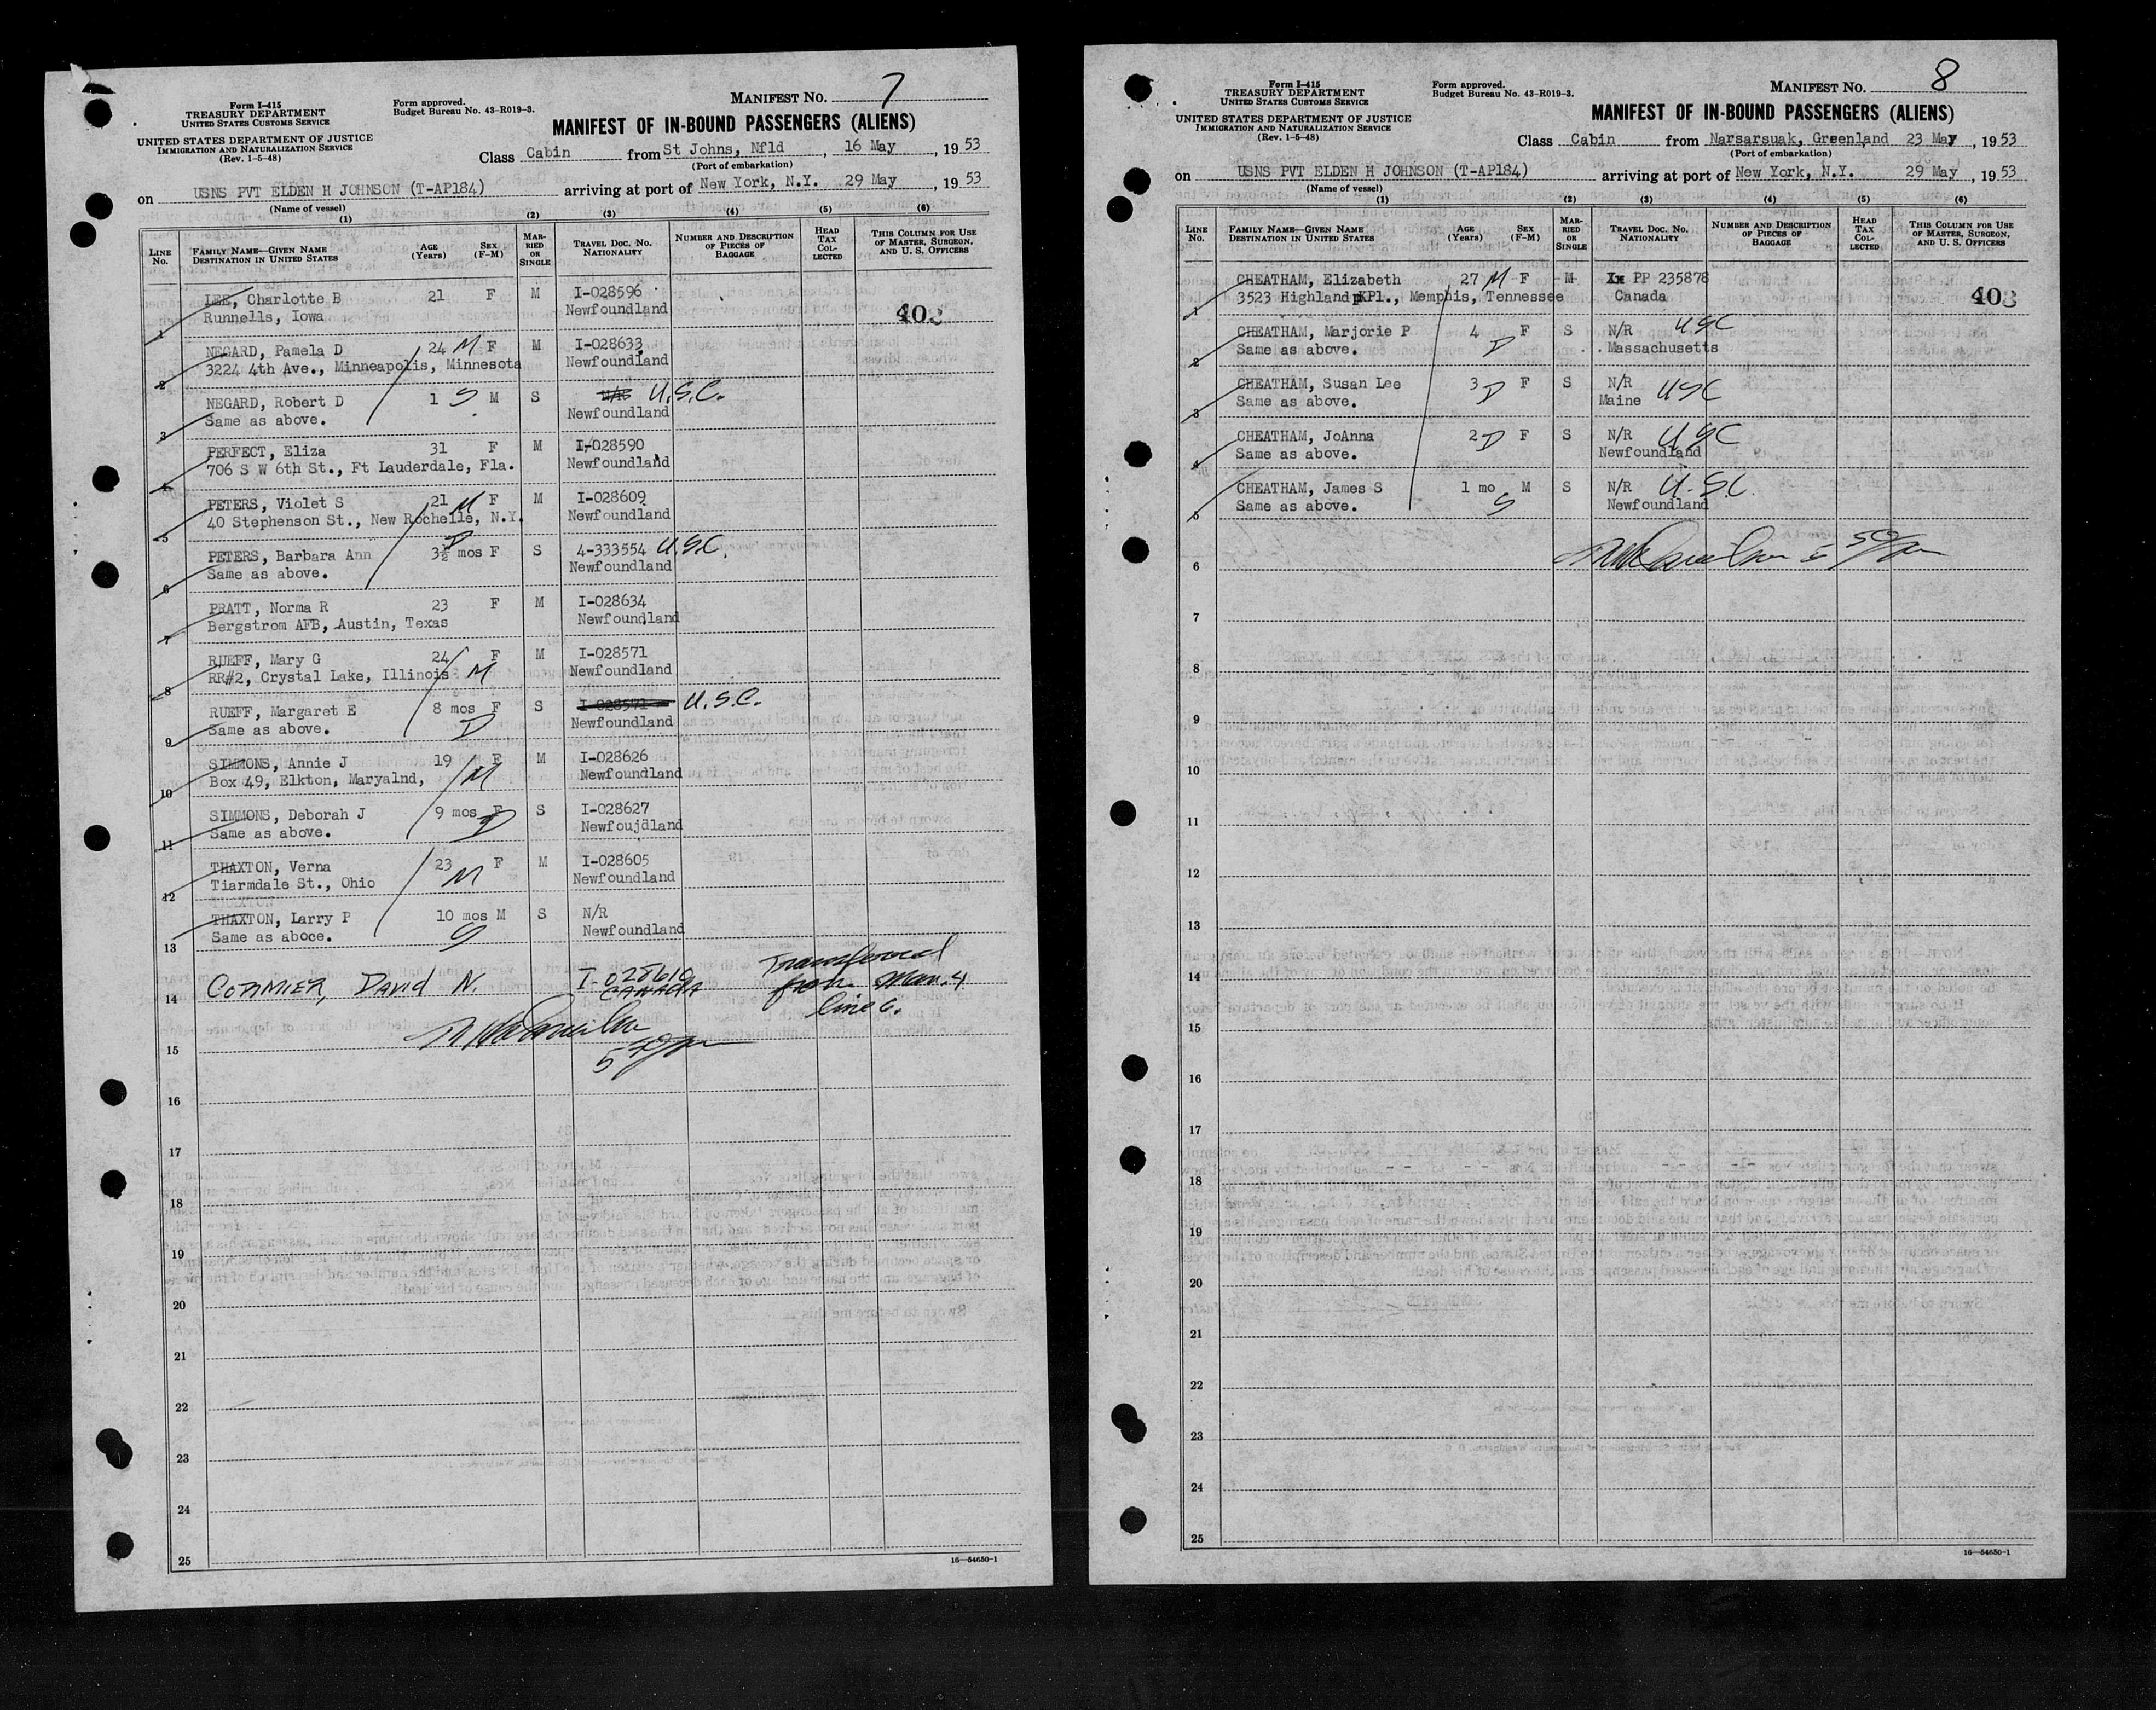 Form I-415
TREASURY DEPARTMENT
UNITED STATES CUSTOMS SERVICE
UNITED STATES DEPARTMENT OF JUSTICE
IMMIGRATION AND NATURALIZATION SERVICE
(Rev. 1-5-48)
Form approved.
Budget Bureau No. 43-R019-3.
MANIFEST NO. 7
MANIFEST OF IN-BOUND PASSENGERS (ALIENS)
Class Cabin from St Johns, Nfld, 16 May, 1953
(Port of embarkation)
on USNS PVT ELDEN H JOHNSON (T-AP184) arriving at port of New York, N.Y. 29 May, 1953
(Name of vessel)
(1) (2) (3) (4) (5) (6)
LINE NO. FAMILY NAME—GIVEN NAME DESTINATION IN UNITED STATES AGE (Years) SEX (F-M) MARRIED OR SINGLE TRAVEL DOC. NO. NATIONALITY NUMBER AND DESCRIPTION OF PIECES OF BAGGAGE HEAD TAX COLLECTED THIS COLUMN FOR USE OF MASTER, SURGEON, AND U. S. OFFICERS
1 LEE, Charlotte B 21 F M I-028596
Runnells, Iowa Newfoundland
2 NEGARD, Pamela D 24 M F M I-028633
3224 4th Ave., Minneapolis, Minnesota Newfoundland
3 NEGARD, Robert D 1 S M S U.S.C.
Same as above. Newfoundland
4 PERFECT, Eliza 31 F M I-028590
706 S W 6th St., Ft Lauderdale, Fla. Newfoundland
5 PETERS, Violet S 21 M F M I-028609
40 Stephenson St., New Rochelle, N.Y. Newfoundland
6 PETERS, Barbara Ann 3½ mos D F S 4-333554 U.S.C.
Same as above. Newfoundland
7 PRATT, Norma R 23 F M I-028634
Bergstrom AFB, Austin, Texas Newfoundland
8 RUEFF, Mary G 24 F M I-028571
RR#2, Crystal Lake, Illinois M Newfoundland
9 RUEFF, Margaret E 8 mos F S I-028571 U.S.C.
Same as above. D Newfoundland
10 SIMMONS, Annie J 19 F M I-028626
Box 49, Elkton, Maryalnd, M Newfoundland
11 SIMMONS, Deborah J 9 mos F S I-028627
Same as above. D Newfoujdland
12 THAXTON, Verna 23 F M I-028605
Tiarmdale St., Ohio M Newfoundland
13 THAXTON, Larry P 10 mos M S N/R
Same as aboce. S Newfoundland
14 CORMIER, DAVID N. I-028610 CANADA Transferred from Man. 4 line 6.
15
16
17
18
19
20
21
22
23
24
25
16—54650-1
Form I-415
TREASURY DEPARTMENT
UNITED STATES CUSTOMS SERVICE
UNITED STATES DEPARTMENT OF JUSTICE
IMMIGRATION AND NATURALIZATION SERVICE
(Rev. 1-5-48)
Form approved.
Budget Bureau No. 43-R019-3.
MANIFEST NO. 8
MANIFEST OF IN-BOUND PASSENGERS (ALIENS)
Class Cabin from Narsarsuak, Greenland 23 May, 1953
(Port of embarkation)
on USNS PVT ELDEN H JOHNSON (T-AP184) arriving at port of New York, N.Y. 29 May, 1953
(Name of vessel)
(1) (2) (3) (4) (5) (6)
LINE NO. FAMILY NAME—GIVEN NAME DESTINATION IN UNITED STATES AGE (Years) SEX (F-M) MARRIED OR SINGLE TRAVEL DOC. NO. NATIONALITY NUMBER AND DESCRIPTION OF PIECES OF BAGGAGE HEAD TAX COLLECTED THIS COLUMN FOR USE OF MASTER, SURGEON, AND U. S. OFFICERS
1 CHEATHAM, Elizabeth 27 M F M PP 235878
3523 Highland Pl., Memphis, Tennessee Canada 403
2 CHEATHAM, Marjorie P 4 F S N/R USC
Same as above. D Massachusetts
3 CHEATHAM, Susan Lee 3 D F S N/R
Same as above. Maine USC
4 CHEATHAM, JoAnna 2 D F S N/R USC
Same as above. Newfoundland
5 CHEATHAM, James S 1 mo M S N/R U.S.C.
Same as above. S Newfoundland
6
7
8
9
10
11
12
13
14
15
16
17
18
19
20
21
22
23
24
25
16—54650-1